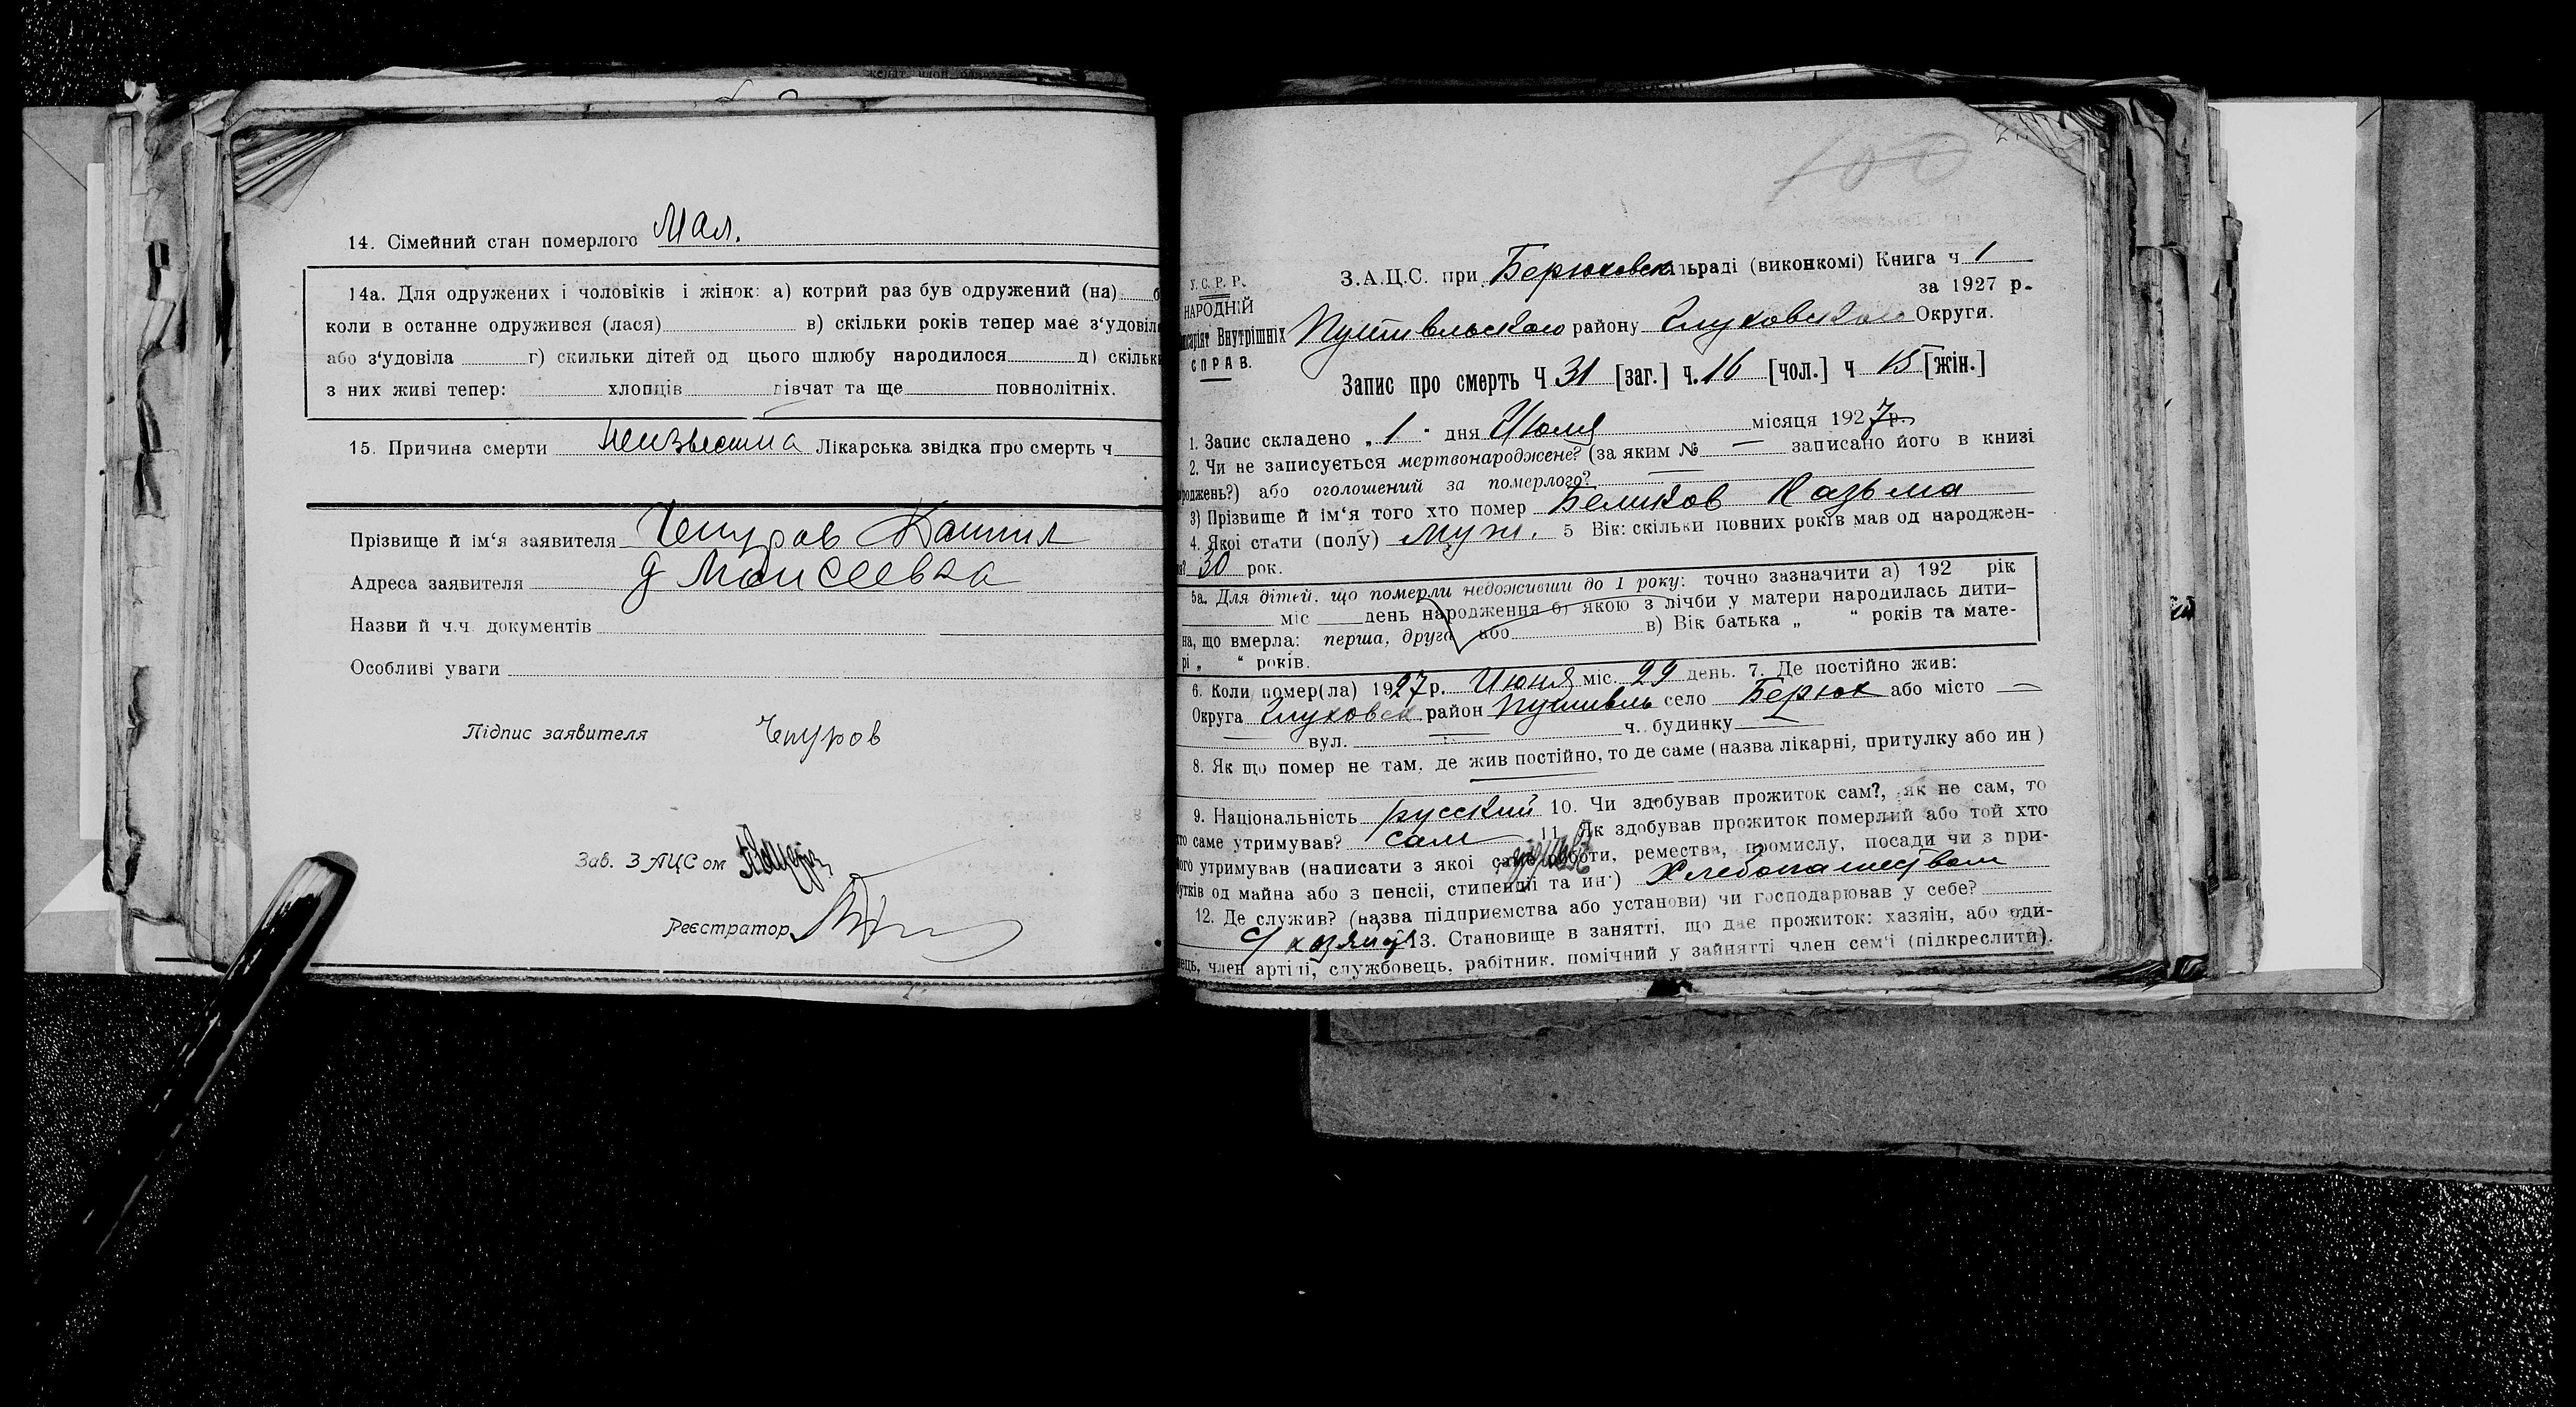 14. Сімейний стан померлого Мал.
14а. Для одружених і чоловіків і жінок: а) котрий раз був одружений (на)
коли в останне одружився (лася) в) скільки років тепер має з‘удовіл
або з‘удовіла г) скильки дітей од цього шлюбу народилося д) скільки
з них живі тепер: хлопців дівчат та ще повнолітніх.
15. Причина смерти Неизвестна Лікарська звідка про смерть ч
Прізвище й ім‘я заявителя Чепуров
Адреса заявителя д Моисеевка
Назви й ч.ч. документів
Особливі уваги
Підпис заявителя Чепуров
Зав. ЗАЦСом
Реєстратор
100
У.С.Р.Р.
НАРОДНІЙ
Внутрішніх
СПРАВ.
З.А.Ц.С. при Берюховск льраді (виконкомі) Книга ч 1
за 1927 р.
Путивльского району Глуховского Округи.
Запис про смерть Ч 31 [заг.] ч. 16 [чол.] ч 15 [жін.]
1. Запис складено „ 1 “ дня Июля місяця 1927 р.
2. Чи не записується мертвонароджене? (за яким № — записано його в книзі
роджень?) або оголошений за померлого?
3) Прізвище й ім‘я того хто помер Беликов Казьма
4. Якої стати (полу) муж. 5 Вік: скільки повних років мав од народжен-
30 рок.
5а. Для дітей, що померли недоживши до 1 року: точно зазначити а) 192 рік
міс день народження б) якою з лічби у матери народилась дити-
на, що вмерла: перша, друга або в) Вік батька „ “ років та мате-
рі „ “ років.
6. Коли помер(ла) 1927 р. Июня міс. 29 день. 7. Де постійно жив:
Округа Глуховск район Путивль село Берюх або місто —
вул. ч. будинку
8. Як що помер не там, де жив постійно, то де саме (назва лікарні, притулку або ин)
9. Національність русский 10. Чи здобував прожиток сам?, як не сам, то
то саме утримував? сам 11. Як здобував прожиток померлий або той хто
ого утримував (написати з якої саме роботи, ремества, промислу, посади чи з при-
бутків од майна або з пенсії, стипендії та ин) Хлебопашеством
12. Де служив? (назва підприємства або установи) чи господарював у себе?
13. Становище в занятті, що дає прожиток: хазяін, або оди-
нець, член артілі, службовець, рабітник, помічний у зайнятті член сем‘ї (підкреслити).